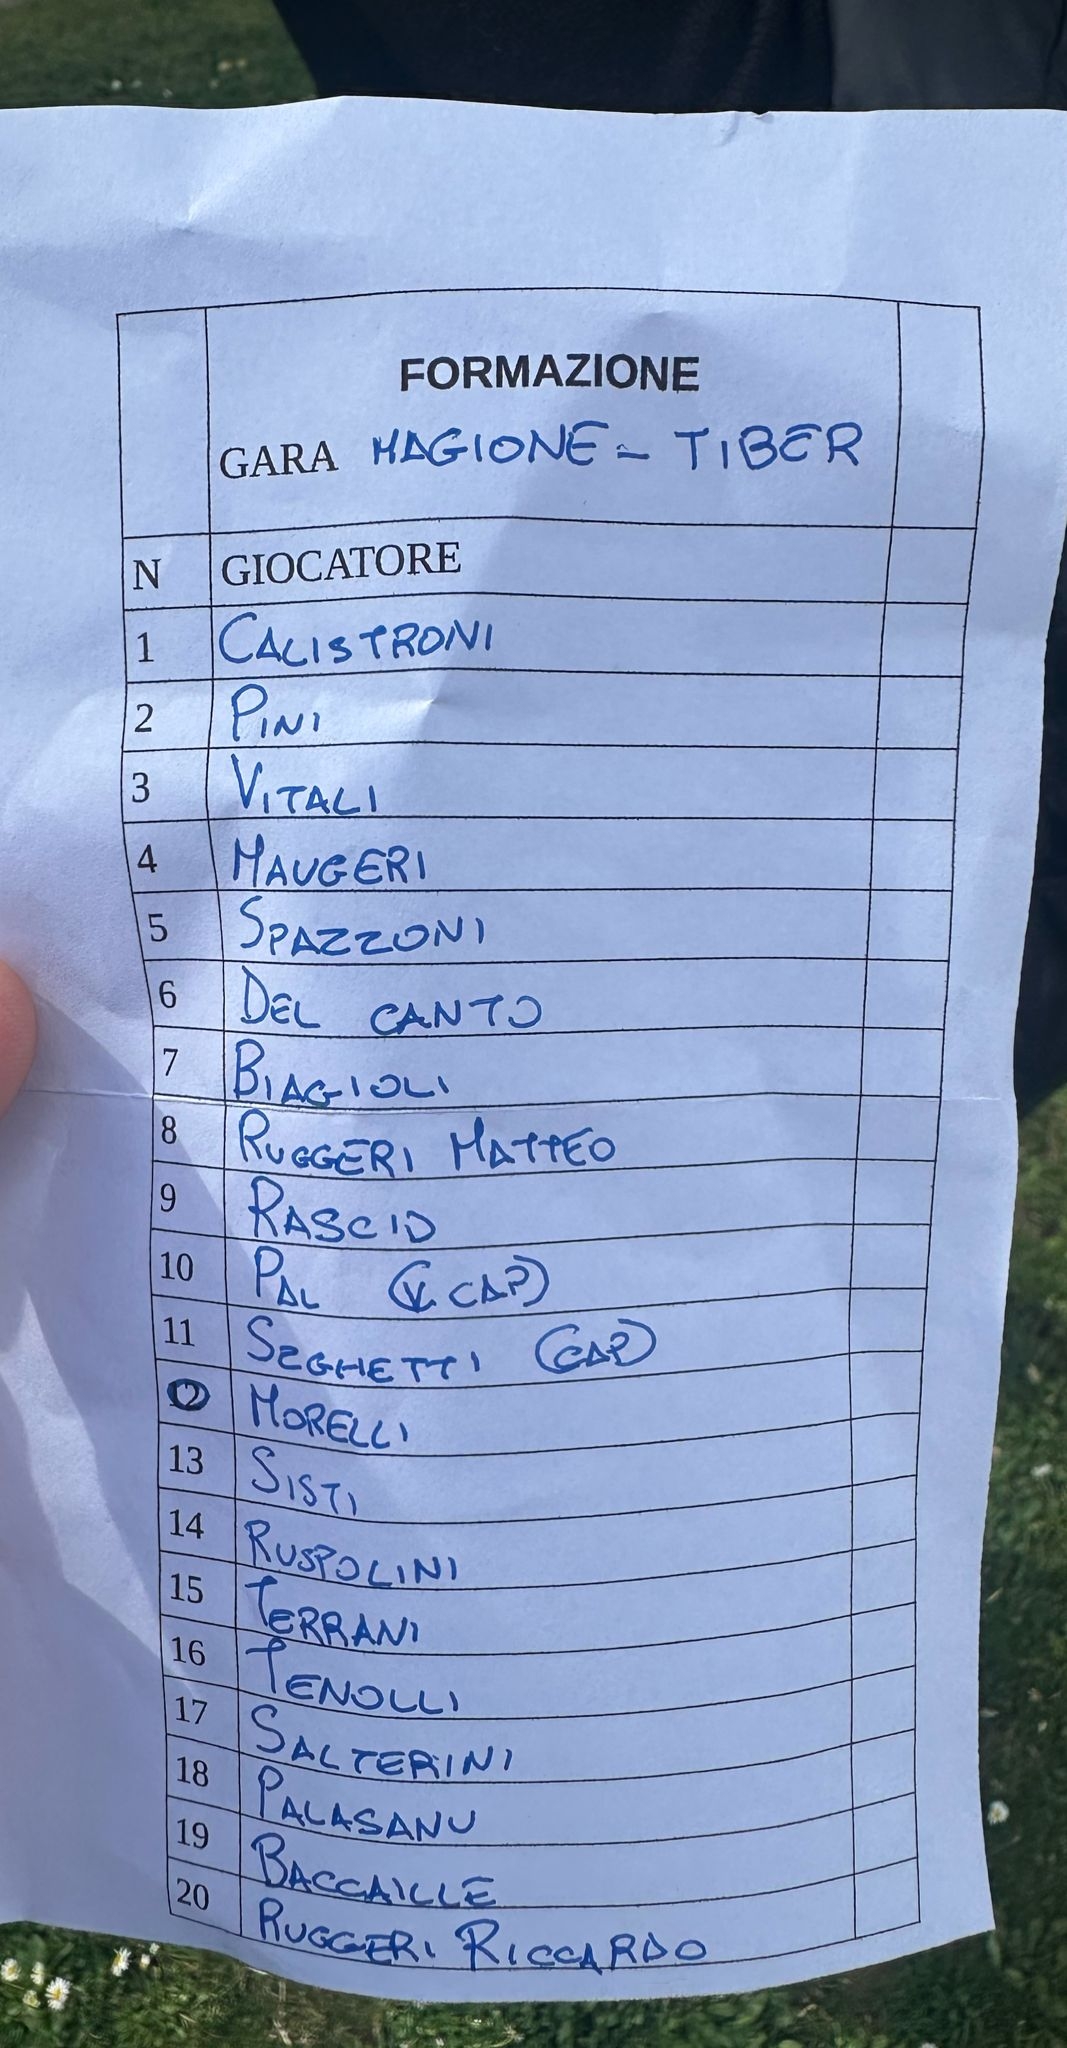 FORMAZIONE
GARA MAGIONE - TIBER
N GIOCATORE
1 CALISTRONI
2 PINI
3 VITALI
4 MAUGERI
5 SPAZZONI
6 DEL CANTO
7 BIAGIOLI
8 RUGGERI MATTEO
9 RASCIO
10 PAL (V. CAP)
11 SEGHETTI (CAP)
12 MORELLI
13 SISTI
14 RUSPOLINI
15 TERRANI
16 TENOLLI
17 SALTERINI
18 PALASANU
19 BACCAILLE
20 RUGGERI RICCARDO